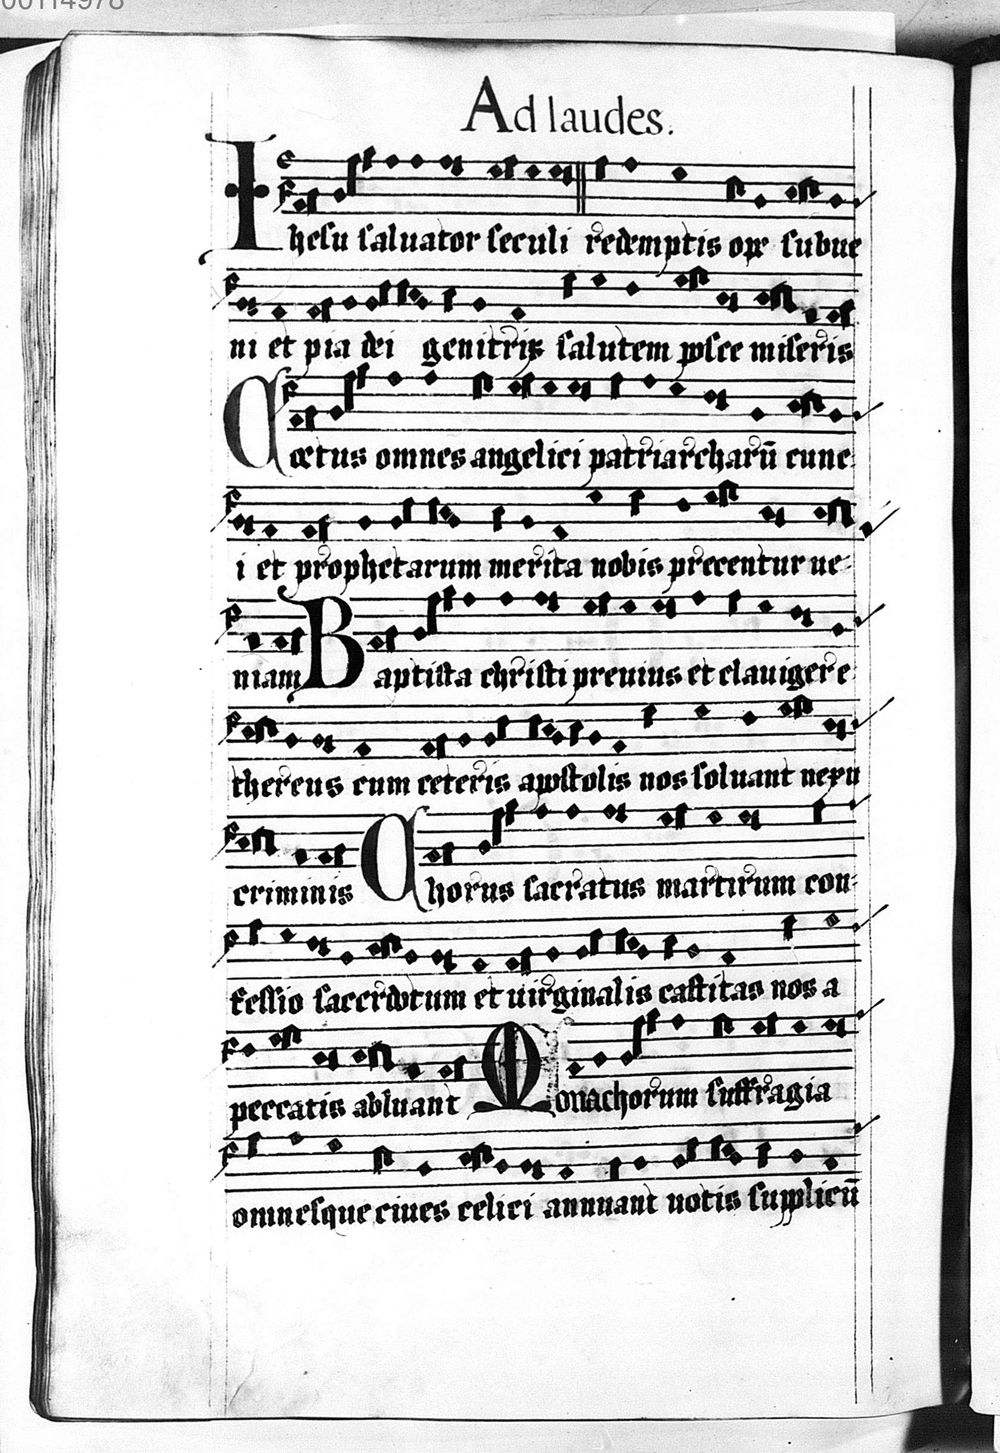 00114978
Ad laudes.
Ihesu saluator seculi redemptis ope subue
ni et pia dei genitrix salutem posce miseris
Cetus omnes angelici patriarcharū cune
i et prophetarum merita nobis precentur ue
niam Baptista christi preuius et clauiger e
thereus cum ceteris apostolis nos soluant nexu
criminis Chorus sacratus martirum con
fessio sacerdotum et uirginalis castitas nos a
peccatis abluant Monachorum suffragia
omnesque ciues celici annuant uotis supplicū